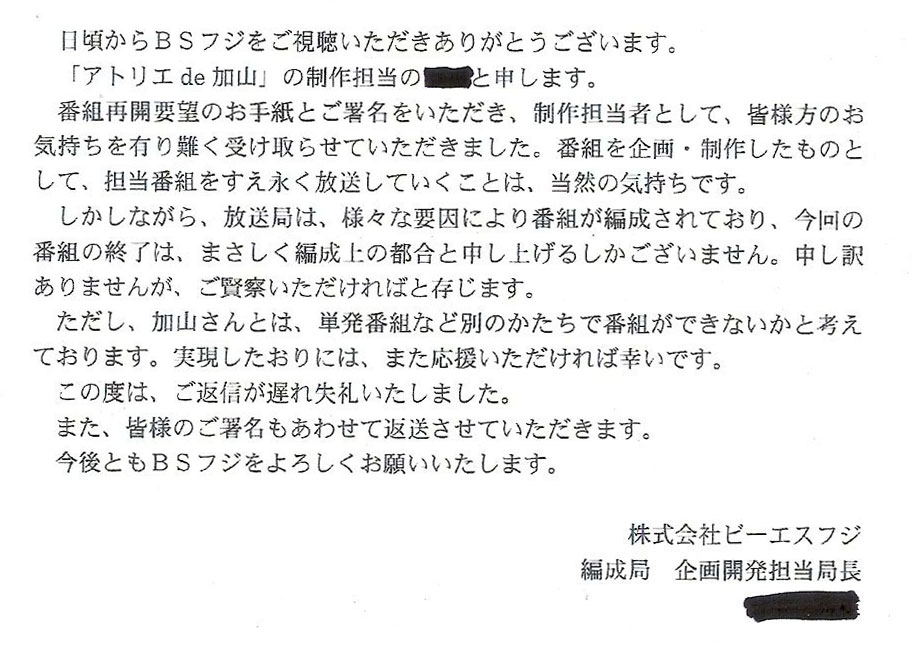 日頃からＢＳフジをご視聴いただきありがとうございます。
「アトリエde加山」の制作担当の と申します。
番組再開要望のお手紙とご署名をいただき、制作担当者として、皆様方のお
気持ちを有り難く受け取らせていただきました。番組を企画・制作したものと
して、担当番組をすえ永く放送していくことは、当然の気持ちです。
しかしながら、放送局は、様々な要因により番組が編成されており、今回の
番組の終了は、まさしく編成上の都合と申し上げるしかございません。申し訳
ありませんが、ご賢察いただければと存じます。
ただし、加山さんとは、単発番組など別のかたちで番組ができないかと考え
ております。実現したおりには、また応援いただければ幸いです。
この度は、ご返信が遅れ失礼いたしました。
また、皆様のご署名もあわせて返送させていただきます。
今後ともＢＳフジをよろしくお願いいたします。
株式会社ビーエスフジ
編成局　企画開発担当局長